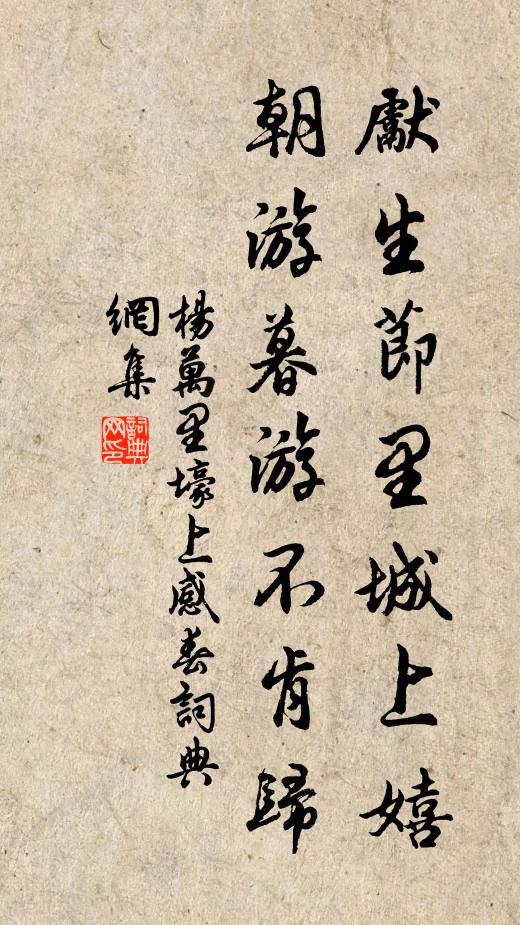 獻生節里城上嬉
朝游暮游不肯歸
楊萬里壕上感春詞典
網集
詞典
网印